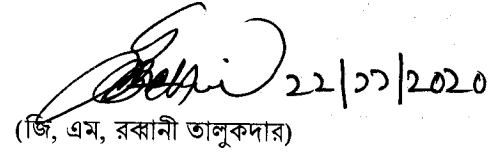 22/11/2020
(জি, এম, রব্বানী তালুকদার)